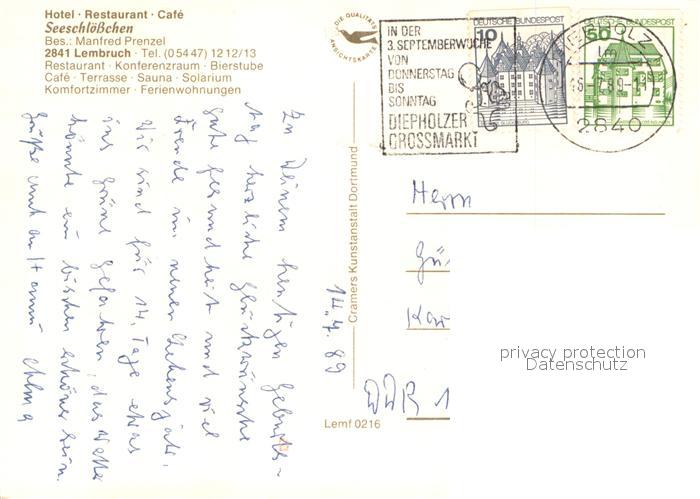 Hotel · Restaurant · Café
Seeschlößchen
Bes.: Manfred Prenzel
2841 Lembruch · Tel. (0 54 47) 12 12/13
Restaurant · Konferenzraum · Bierstube
Café · Terrasse · Sauna · Solarium
Komfortzimmer · Ferienwohnungen
DIE QUALITÄTS
ANSICHTSKARTE
IN DER
3. SEPTEMBERWOCHE
VON
DONNERSTAG
BIS
SONNTAG
DIEPHOLZER
GROSSMARKT
DEUTSCHE BUNDESPOST
10
DEUTSCHE BUNDESPOST
50
DIEPHOLZ
2840
Zu Deinem heutigen Geburts-
tag herzliche Glückwünsche
gute Gesundheit und viel
Freude im neuen Lebensjahr.
Wir sind für 14 Tage etwas
ins Grüne gefahren, das Wetter
könnte ein bischen schöner sein.
Grüße auch an
14.7.89
Cramers Kunstanstalt Dortmund
Lemf 0216
Herrn
Gü
Kar
DDR 1
privacy protection
Datenschutz